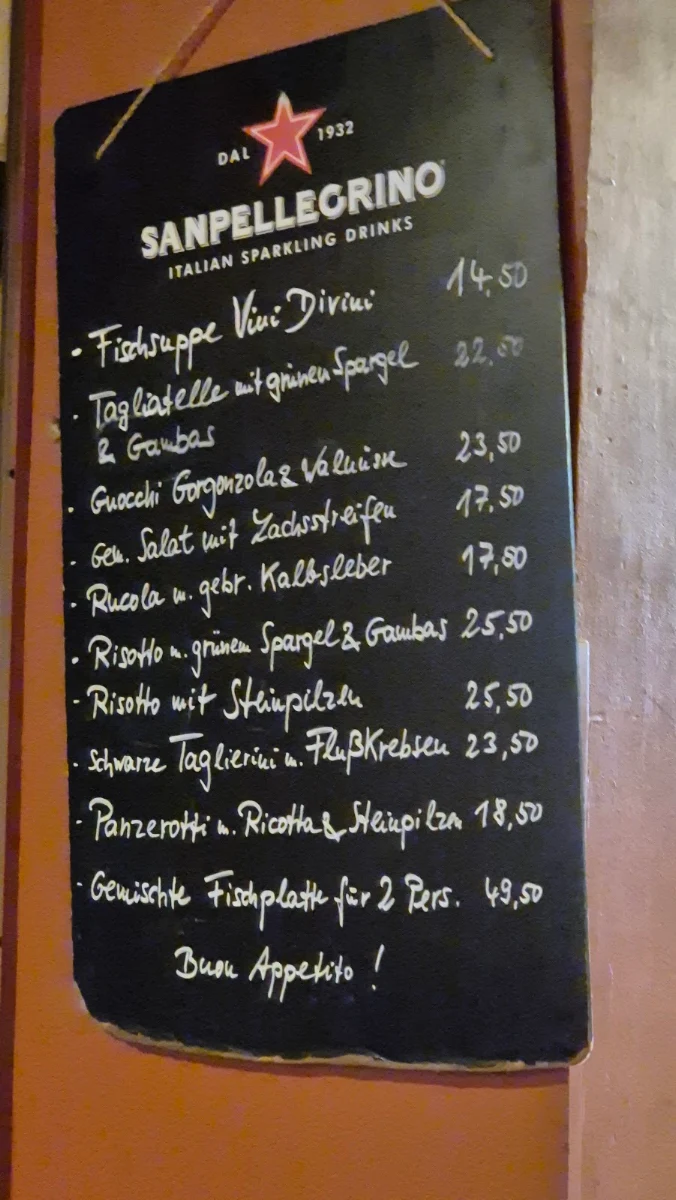 DAL 1932
SANPELLEGRINO
ITALIAN SPARKLING DRINKS
• Fischsuppe Vini Divini 14,50
• Tagliatelle mit grünen Spargel 22,50
& Gambas
• Gnocchi Gorgonzola & Walnüsse 23,50
• Gem. Salat mit Lachsstreifen 17,50
• Rucola m. gebr. Kalbsleber 17,50
• Risotto m. grünem Spargel & Gambas 25,50
- Risotto mit Steinpilzen 25,50
• Schwarze Taglierini m. Flußkrebsen 23,50
- Panzerotti m. Ricotta & Steinpilzen 18,50
- Gemischte Fischplatte für 2 Pers. 49,50
Buon Appetito !